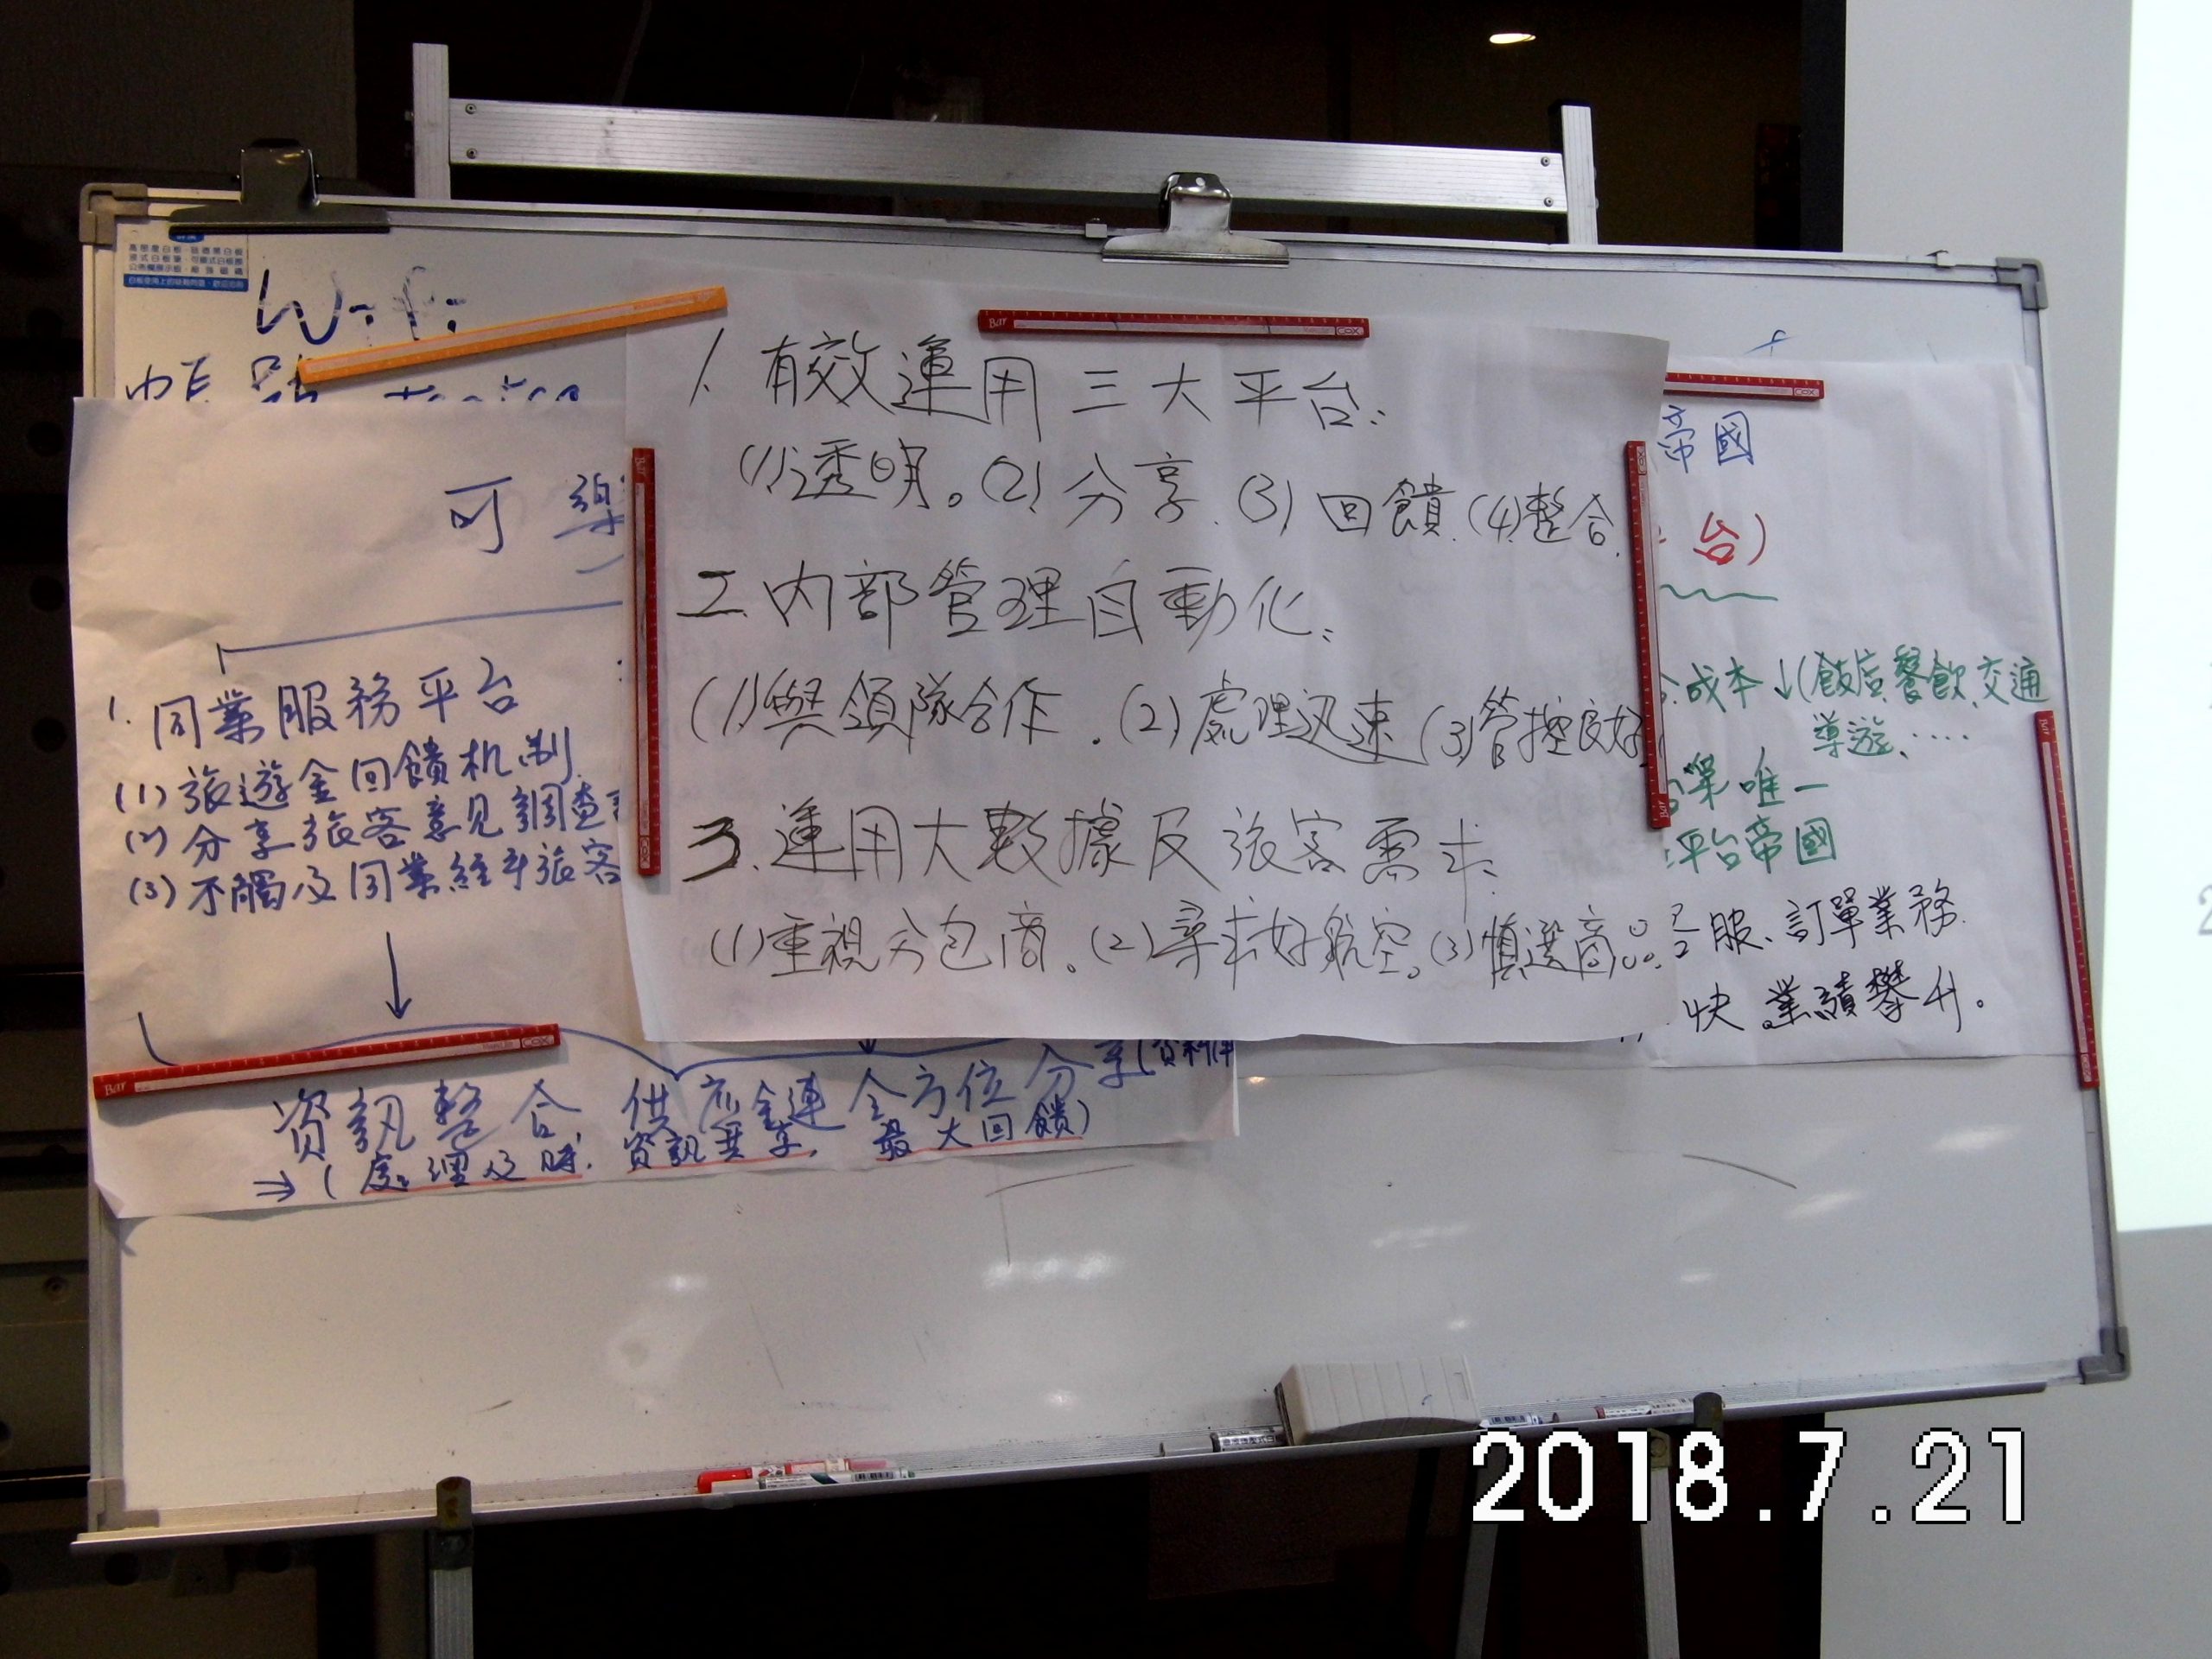 Wifi
可樂
1. 同業服務平台
(1) 旅遊金回饋机制
(2) 分享旅客意見調查
(3) 不觸及同業經手旅客
資訊整合 供應鏈 全方位分享(資料庫
⇒(處理及時, 資訊共享, 最大回饋)
1. 有效運用三大平台:
(1)透明。(2) 分享. (3) 回饋.(4)整合.
2. 內部管理自動化:
(1)與領隊合作.(2)處理迅速(3)管控良好
3. 運用大數據及旅客需求.
(1)重視分包商。(2)尋求好航空。(3)慎選商品
帝國
台)
成本↓(飯店、餐飲、交通
導遊、....
業唯一
平台帝國
服、訂單業務.
快。業績攀升。
2018.7.21